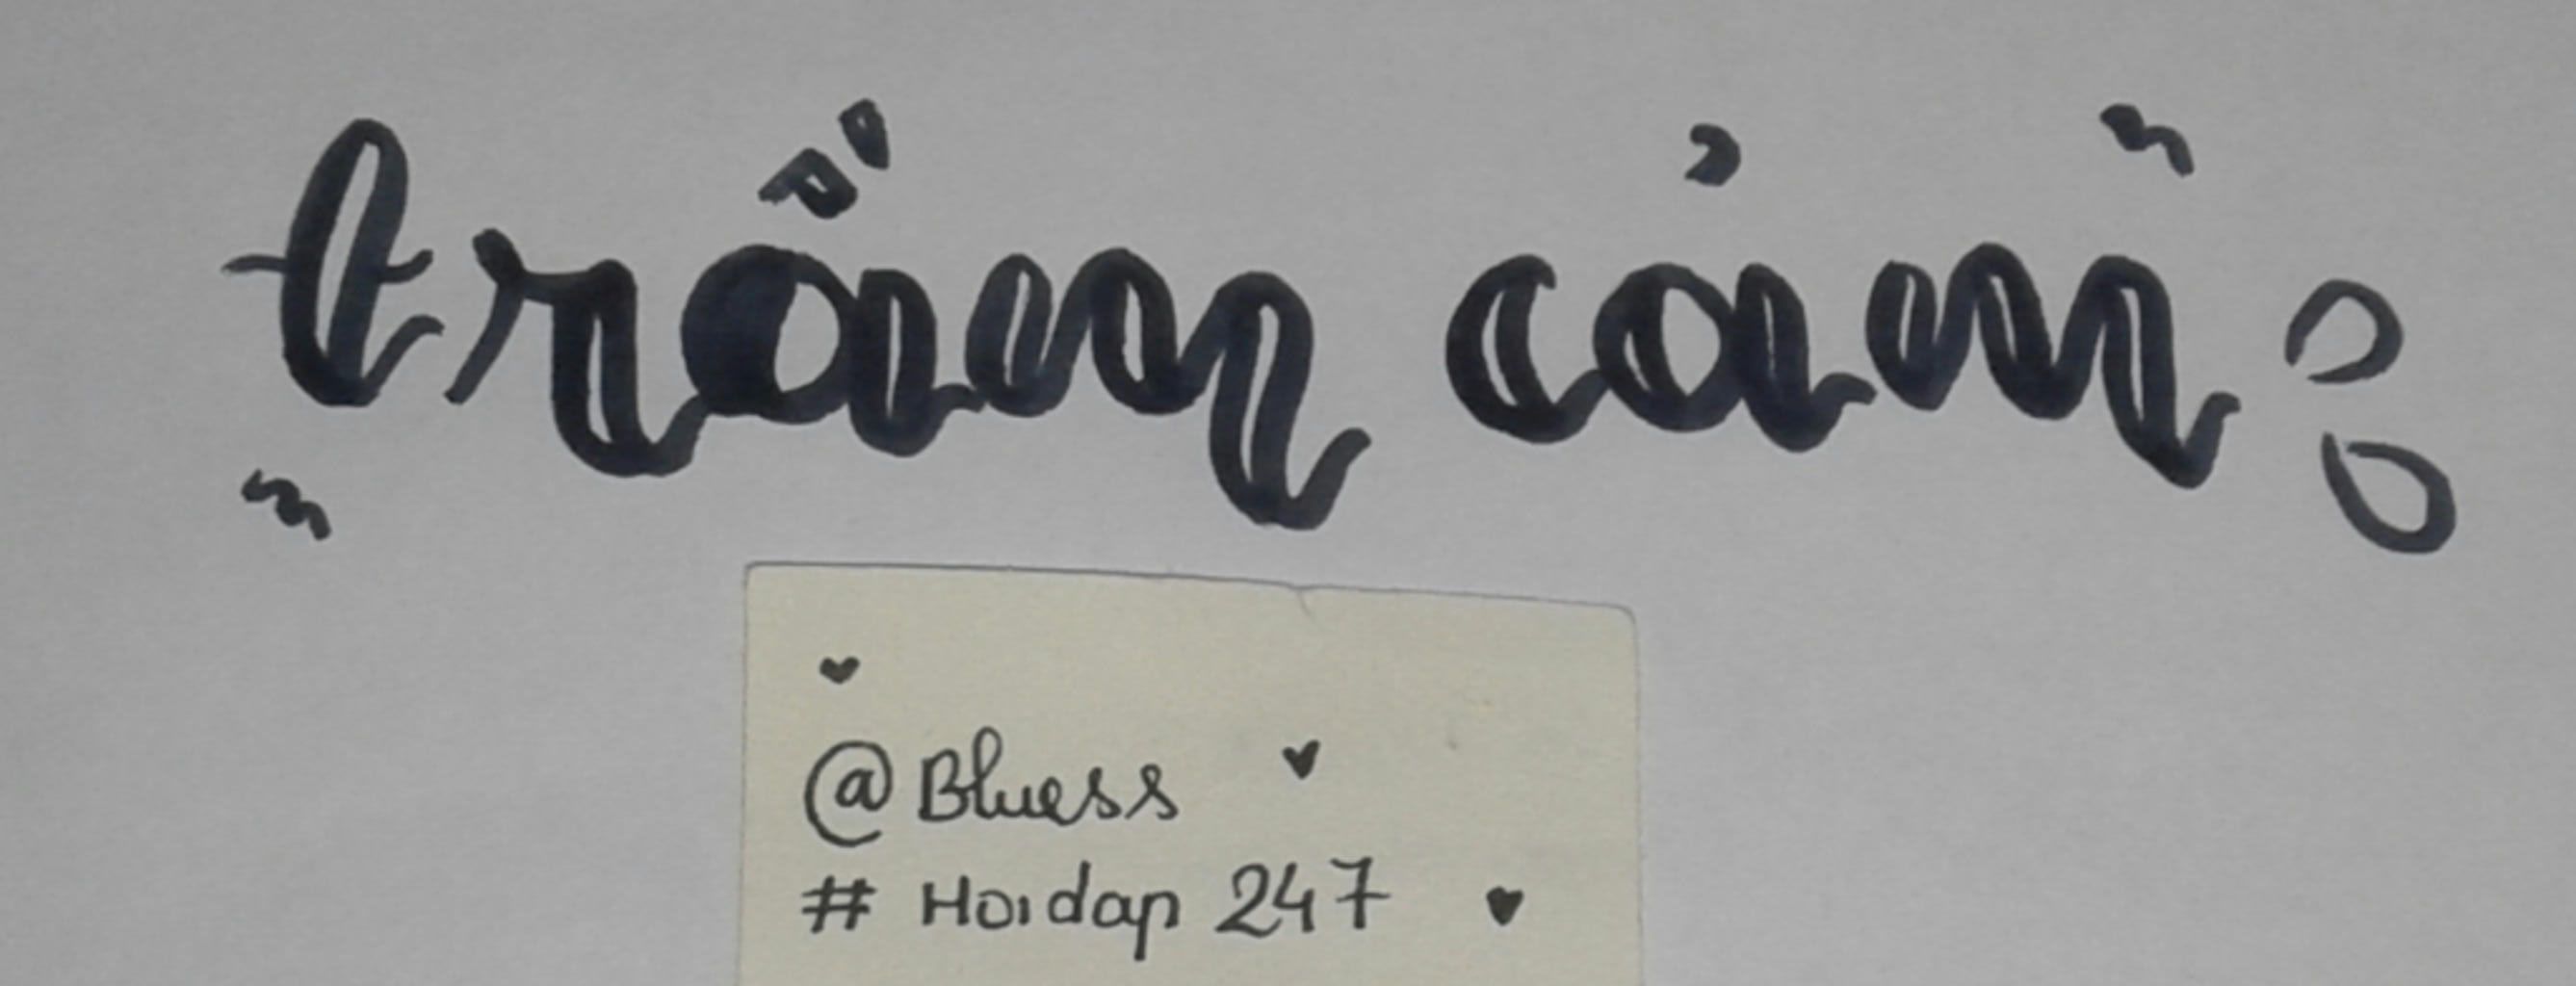 trầm cảm
@Bluess
# Hoidap 247